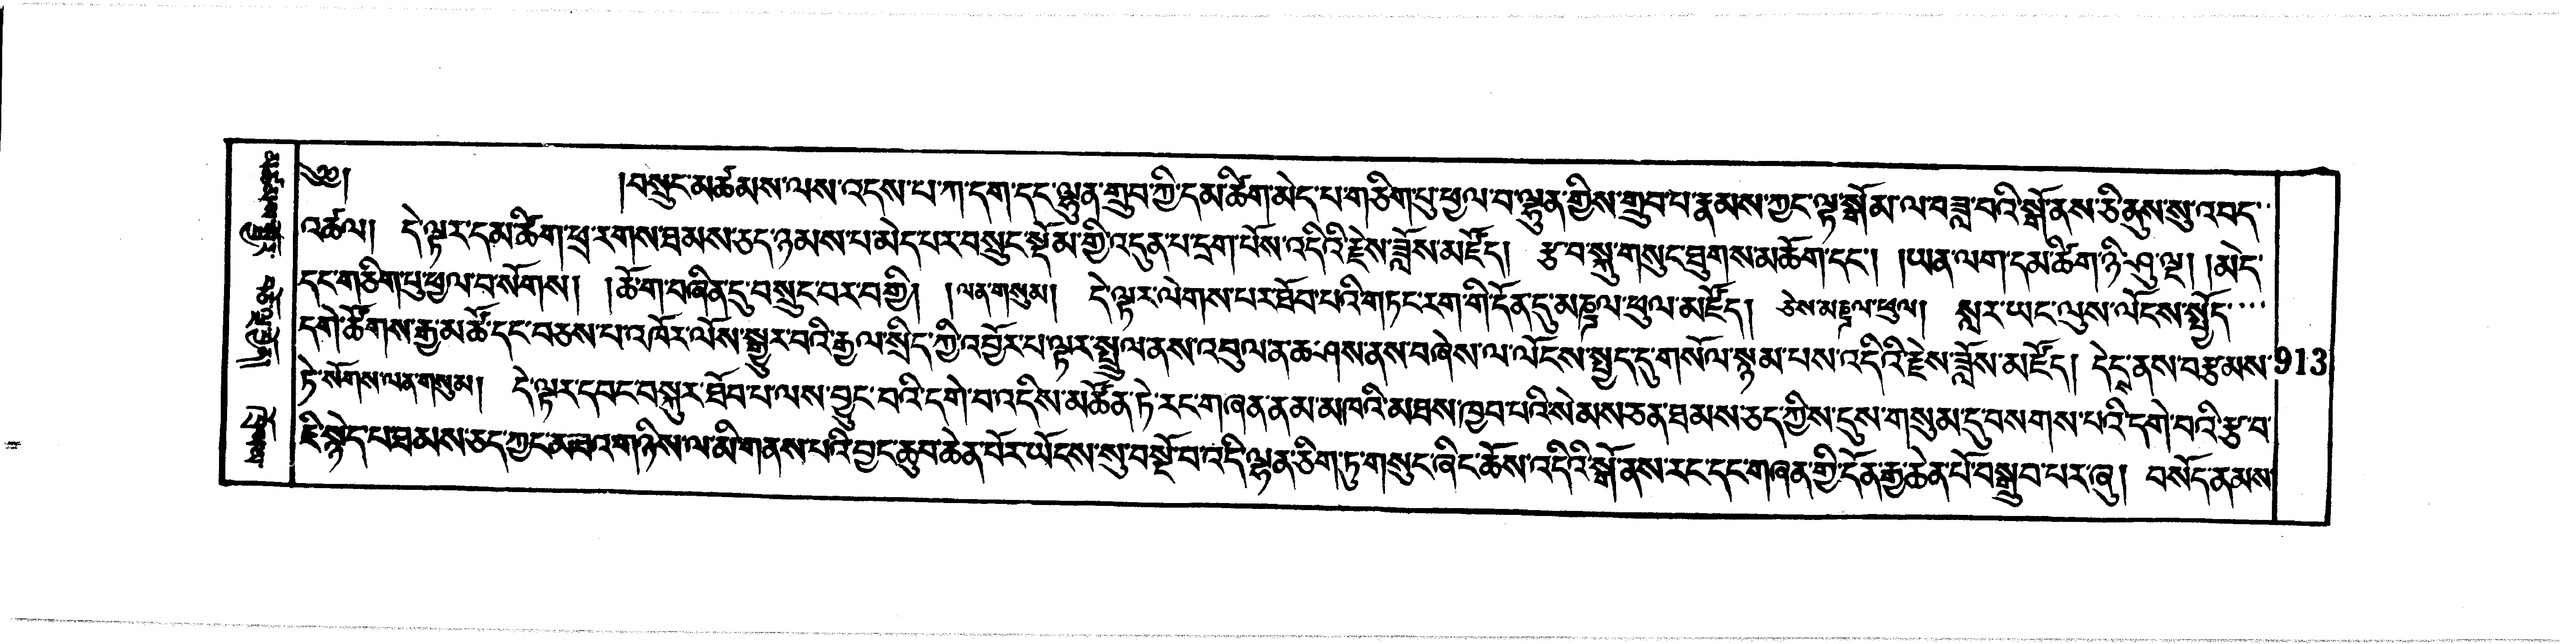 ༄༅། །བསྲུང་མཚམས་ལས་འདས་པ་ཀ་དག་དང་ལྷུན་གྲུབ་ཀྱི་དམ་ཚིག་མེད་པ་གཅིག་པུ་ཕྱལ་བ་ལྷུན་གྱིས་གྲུབ་པ་རྣམས་ཀྱང་ལྟ་སྒོམ་ལ་བཟླ་བའི་སྒོ་ནས་ཅི་ནུས་སུ་འབད་
འཚལ། དེ་ལྟར་དམ་ཚིག་ཕྲ་རགས་ཐམས་ཅད་ཉམས་པ་མེད་པར་བསྲུང་སྡོམ་གྱི་འདུན་པ་དྲག་པོས་འདིའི་རྗེས་ཟློས་མཛོད། རྩ་བ་སྐུ་གསུང་ཐུགས་མཆོག་དང་། །ཡན་ལག་དམ་ཚིག་ཉི་ཤུ་ལྔ། །མེད་
དང་གཅིག་པུ་ཕྱལ་བ་སོགས། །ཆོ་ག་བཞིན་དུ་བསྲུང་བར་བགྱི། །ལན་གསུམ། དེ་ལྟར་ལེགས་པར་ཐོབ་པའི་གཏང་རག་གི་དོན་དུ་མཎྜལ་ཕུལ་མཛོད། ཅེས་མཎྜལ་ཕུལ། སླར་ཡང་ལུས་ལོངས་སྤྱོད་
དགེ་ཚོགས་རྒྱ་མཚོ་དང་བཅས་པ་འཁོར་ལོས་སྒྱུར་བའི་རྒྱལ་སྲིད་ཀྱི་འབྱོར་པ་ལྟར་སྤྲུལ་ནས་འབུལ་ན་ཆ་ཤས་ནས་བཞེས་ལ་ལོངས་སྤྱད་དུ་གསོལ་སྙམ་པས་འདིའི་རྗེས་ཟློས་མཛོད། དེང་ནས་བརྩམས་ 913
ཏེ་སོགས་ལན་གསུམ། དེ་ལྟར་དབང་བསྐུར་ཐོབ་པ་ལས་བྱུང་བའི་དགེ་བ་འདིས་མཚོན་ཏེ་རང་གཞན་ནམ་མཁའི་མཐས་ཁྱབ་པའི་སེམས་ཅན་ཐམས་ཅད་ཀྱིས་དུས་གསུམ་དུ་བསགས་པའི་དགེ་བའི་རྩ་བ་
ཇི་སྙེད་པ་ཐམས་ཅད་ཀྱང་མཐའ་གཉིས་ལ་མི་གནས་པའི་བྱང་ཆུབ་ཆེན་པོར་ཡོངས་སུ་བསྔོ་བ་འདི་ལྷན་ཅིག་ཏུ་གསུང་ཞིང་ཆོས་འདིའི་སྒོ་ནས་རང་དང་གཞན་གྱི་དོན་རྒྱ་ཆེན་པོ་བསྒྲུབ་པར་ཞུ། བསོད་ནམས་